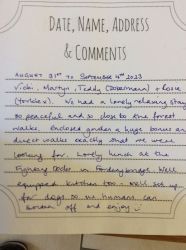 DATE, NAME, ADDRESS
& COMMENTS
AUGUST 31ST to SEPTEMBER 4TH 2023
Vicki, Martyn, Teddy (Dobermann) + Rosie
(torkie x). We had a lovely relaxing stay
so peaceful and so close to the forest
walks. Enclosed garden a huge bonus and
direct walks exactly what we were
looking for. Lovely lunch at the
Fighting Cocks in Fordingbridge. Well
equipped kitchen too - well set up
for dogs so we humans can
off and enjoy